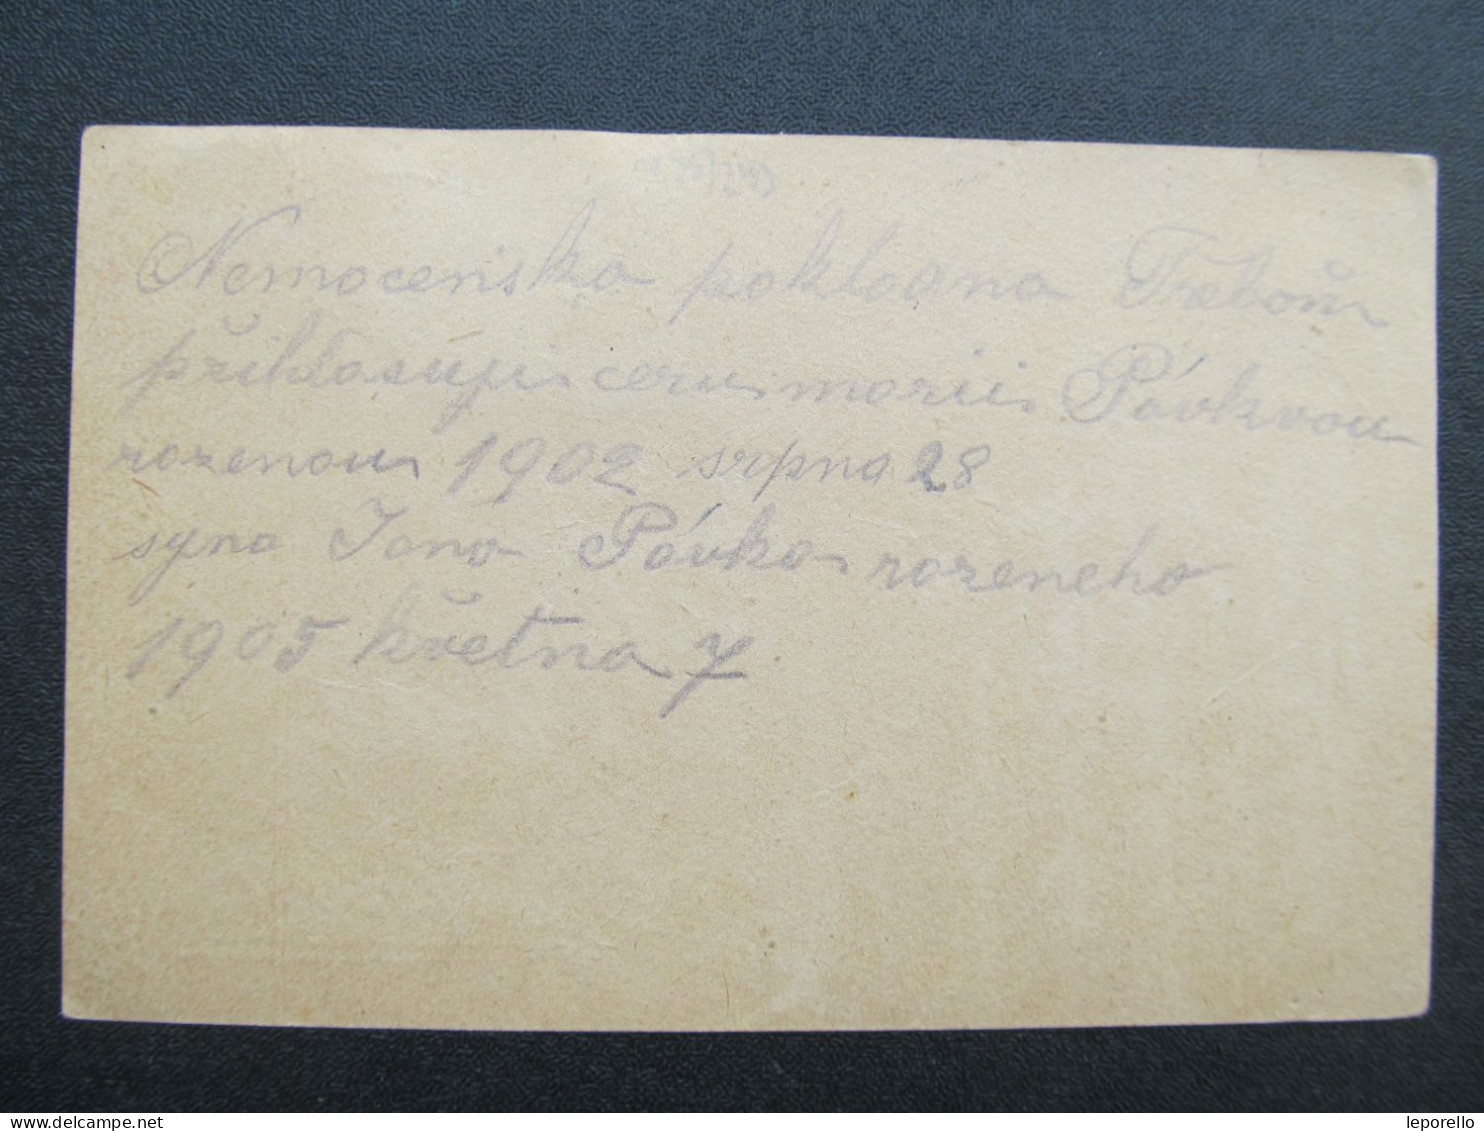 Nemocenska pokladna Třeboň
přihlasuji ceru marii Pávkvou
rozenou 1902 srpna 28
syna Jana Pávka rozeneho
1905 května 7
leporello